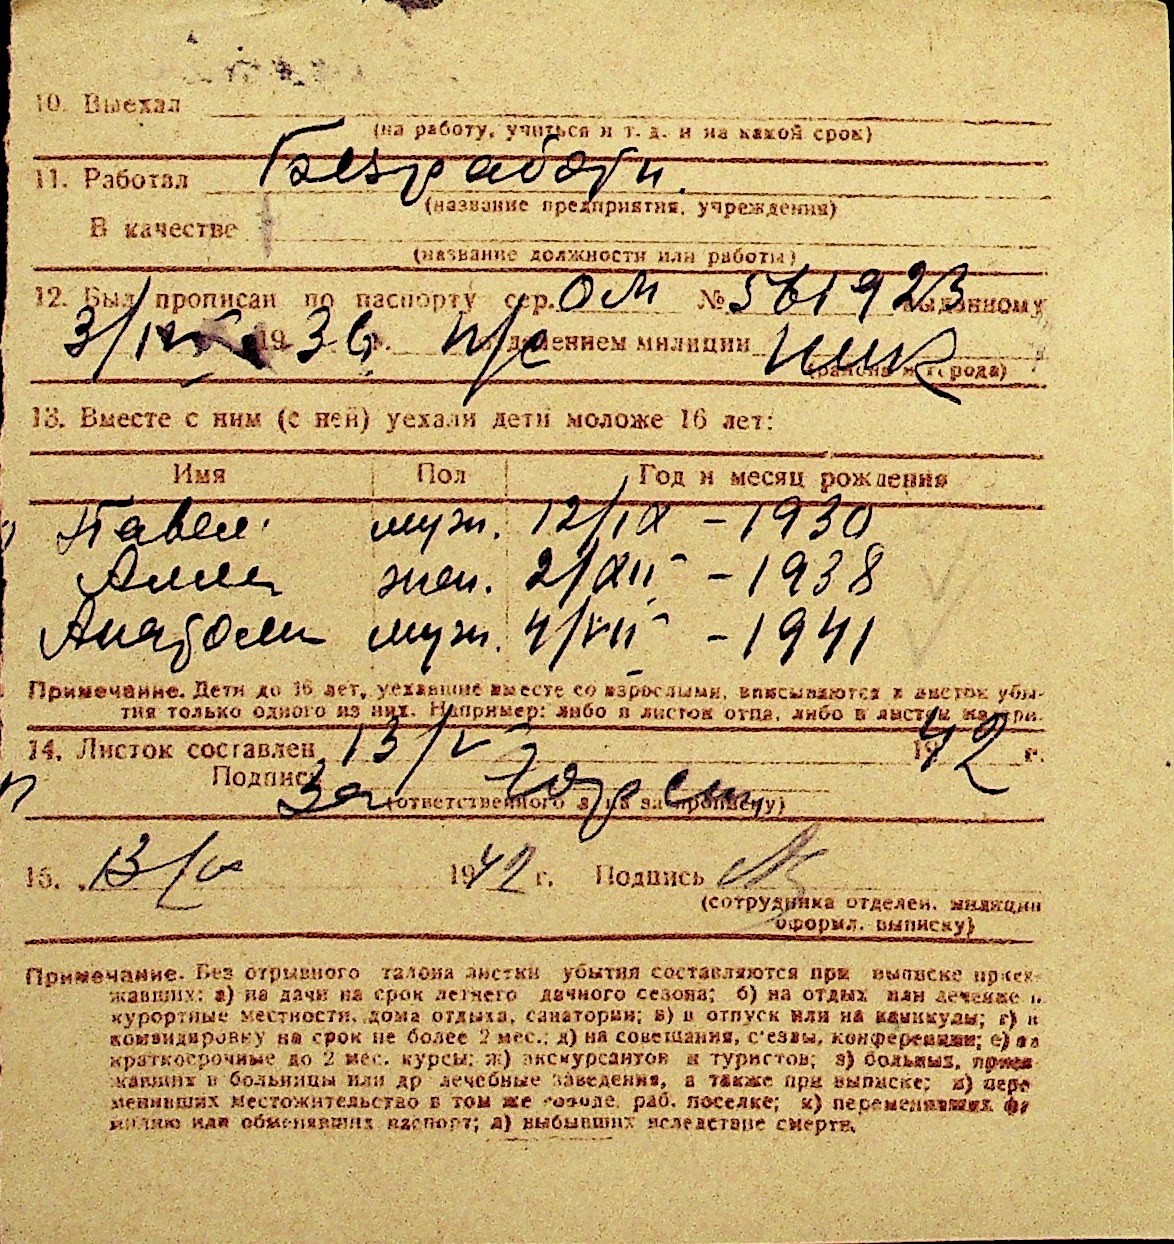 10. Выехал
(на работу, учиться и т. д. и на какой срок)
11. Работал Безработн.
(название предприятия, учреждения)
В качестве
(название должности или работы)
12. Был прописан по паспорту сер. ОМ № 561923 выданному
3/ 19 36 г. н/с отделением милиции
(района и города)
13. Вместе с ним (с ней) уехали дети моложе 16 лет:
Имя Пол Год и месяц рождения
Павел муж. 12/IX – 1930
Алла жен. 2/XII – 1938
Анатоли муж. 4/VII – 1941
Примечание. Дети до 16 лет, уехавшие вместе со взрослыми, вписываются в листок убы-
тия только одного из них. Например: либо в листок отца, либо в листок матери.
14. Листок составлен 13/ 1942 г.
Подпись За
(ответственного лица за прописку)
15. 13/ 1942 г. Подпись
(сотрудника отделен. милиции
оформл. выписку)
Примечание. Без отрывного талона листки убытия составляются при выписке приез-
жавших: а) на дачи на срок летнего дачного сезона; б) на отдых или лечение в
курортные местности, дома отдыха, санатории; в) в отпуск или на каникулы; г) в
командировку на срок не более 2 мес.; д) на совещания, с'езды, конференции; е) на
краткосрочные до 2 мес. курсы; ж) экскурсантов и туристов; з) больных, приез-
жавших в больницы или др лечебные заведения, а также при выписке; и) пере-
менивших местожительство в том же городе, раб. поселке; к) переменивших фа-
милию или обменявших паспорт; л) выбывших вследствие смерти.